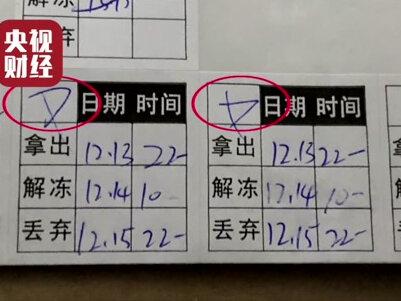 解冻
央视
财经
日期 时间 日期 时间
拿出 12.13 22- 拿出 12.13 22-
解冻 12.14 10- 解冻 12.14 10-
丢弃 12.15 22- 丢弃 12.15 22-